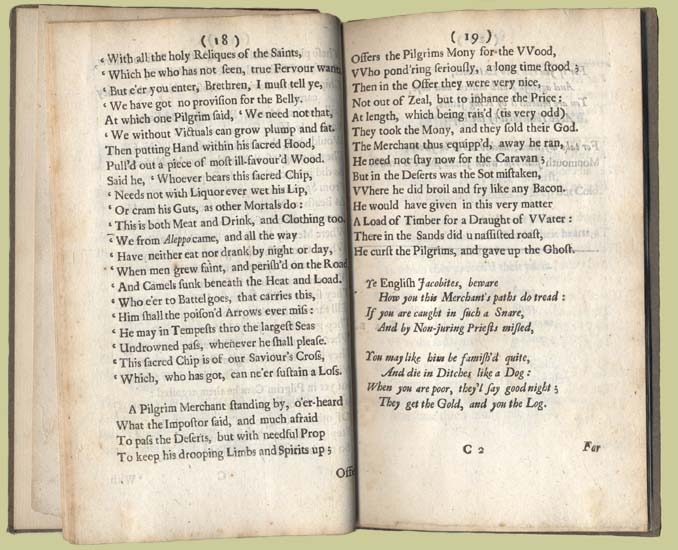 ( 18 )
‘ With all the holy Reliques of the Saints,
‘ Which he who has not seen, true Fervour wants
‘ But e'er you enter, Brethren, I must tell ye,
‘ We have got no provision for the Belly.
At which one Pilgrim said, ‘ We need not that,
‘ We without Victuals can grow plump and fat.
Then putting Hand within his sacred Hood,
Pull'd out a piece of most ill-favour'd Wood.
Said he, ‘ Whoever bears this sacred Chip,
‘ Needs not with Liquor ever wet his Lip,
‘ Or cram his Guts, as other Mortals do :
‘ This is both Meat and Drink, and Clothing too.
‘ We from Aleppo came, and all the way
‘ Have neither eat nor drank by night or day,
‘ When men grew faint, and perish'd on the Road
‘ And Camels sunk beneath the Heat and Load.
‘ Who e'er to Battel goes, that carries this,
‘ Him shall the poison'd Arrows ever mis :
‘ He may in Tempests thro the largest Seas
‘ Undrowned pass, whenever he shall please.
‘ This sacred Chip is of our Saviour's Cross,
‘ Which, who has got, can ne'er sustain a Loss.
A Pilgrim Merchant standing by, o'er-heard
What the Impostor said, and much afraid
To pass the Deserts, but with needful Prop
To keep his drooping Limbs and Spirits up ;
C
Offe
( 19 )
Offers the Pilgrims Mony for the VVood,
VVho pond'ring seriously, a long time stood ;
Then in the Offer they were very nice,
Not out of Zeal, but to inhance the Price :
At length, which being rais'd (tis very odd)
They took the Mony, and they sold their God.
The Merchant thus equipp'd, away he ran,
He need not stay now for the Caravan ;
But in the Deserts was the Sot mistaken,
VVhere he did broil and fry like any Bacon.
He would have given in this very matter
A Load of Timber for a Draught of VVater :
There in the Sands did unassisted roast,
He curst the Pilgrims, and gave up the Ghost.
Ye English Jacobites, beware
How you this Merchant's paths do tread :
If you are caught in such a Snare,
And by Non-juring Priests missed,
You may like him be famish'd quite,
And die in Ditches like a Dog :
When you are poor, they'l say good night ;
They get the Gold, and you the Log.
C 2
For